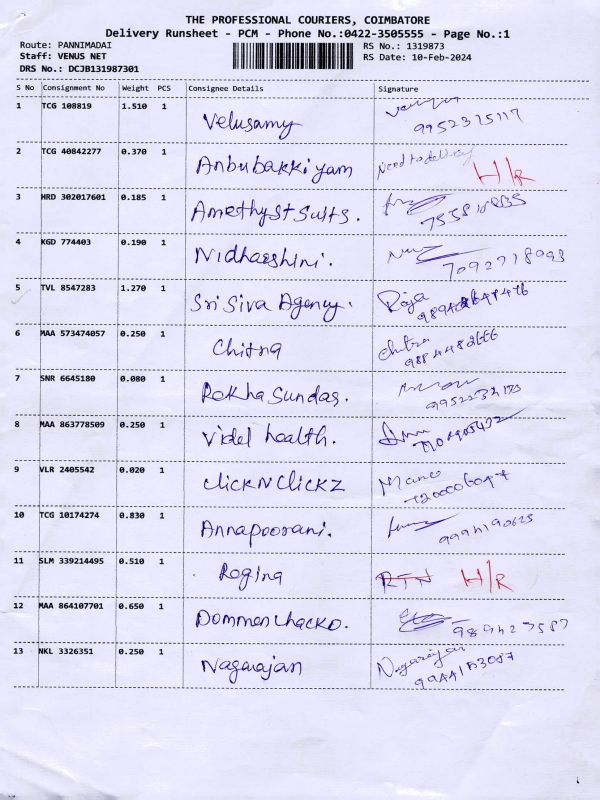 THE PROFESSIONAL COURIERS, COIMBATORE
Delivery Runsheet - PCM - Phone No.:0422-3505555 - Page No.:1
Route: PANNIMADAI RS No.: 1319873
Staff: VENUS NET RS Date: 10-Feb-2024
DRS No.: DCJB131987301
S No Consignment No Weight PCS Consignee Details Signature
1 TCG 108819 1.510 1 Velusamy
2 TCG 40842277 0.370 1 Anbubakkiyam Need to delivery H/R
3 HRD 302017601 0.185 1 Amethyst Suits.
4 KGD 774403 0.190 1 Nidhaeshini. 7092718093
5 TVL 8547283 1.270 1 Sri Siva Agency. Raja
6 MAA 573474057 0.250 1 Chitra Chitra
7 SNR 6645180 0.080 1 Rekha Sundas.
8 MAA 863778509 0.250 1 Videl health.
9 VLR 2405542 0.020 1 Click N Clickz Mano
10 TCG 10174274 0.830 1 Annapoorani. 9994190625
11 SLM 339214495 0.510 1 Rogina RTN H/R
12 MAA 864107701 0.650 1 Dommenchacko. 989427587
13 NKL 3326351 0.250 1 Nagarajan Nagarajan